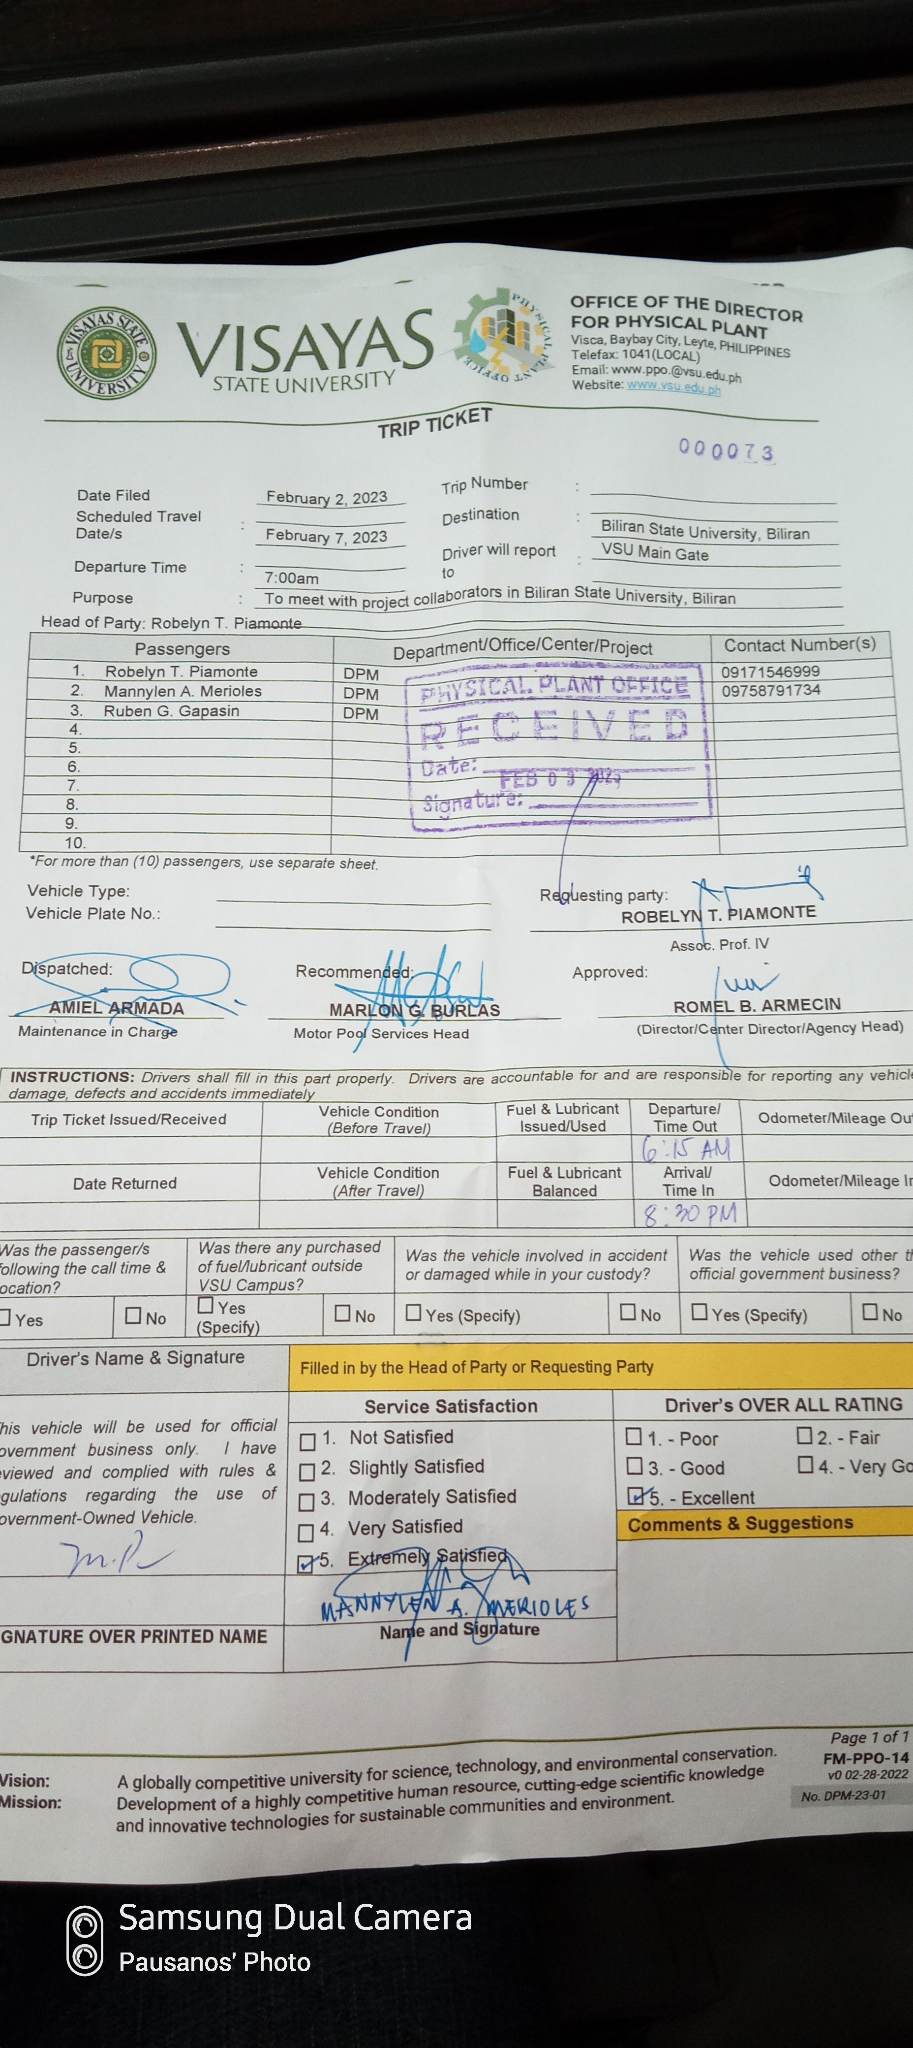 VISAYAS STATE UNIVERSITY
VISAYAS
STATE UNIVERSITY
PHYSICAL PLANT OFFICE
OFFICE OF THE DIRECTOR
FOR PHYSICAL PLANT
Visca, Baybay City, Leyte, PHILIPPINES
Telefax: 1041(LOCAL)
Email: www.ppo.@vsu.edu.ph
Website: www.vsu.edu.ph
TRIP TICKET
000073
Date Filed February 2, 2023 Trip Number :
Scheduled Travel Date/s : February 7, 2023 Destination : Biliran State University, Biliran
Departure Time : 7:00am Driver will report to : VSU Main Gate
Purpose : To meet with project collaborators in Biliran State University, Biliran
Head of Party: Robelyn T. Piamonte
Passengers Department/Office/Center/Project Contact Number(s)
1. Robelyn T. Piamonte DPM 09171546999
2. Mannylen A. Merioles DPM 09758791734
3. Ruben G. Gapasin DPM
4.
5.
6.
7.
8.
9.
10.
PHYSICAL PLANT OFFICE
RECEIVED
Date: FEB 03 2023
Signature:
*For more than (10) passengers, use separate sheet.
Vehicle Type:
Vehicle Plate No.:
Requesting party:
ROBELYN T. PIAMONTE
Assoc. Prof. IV
Dispatched: Recommended: Approved:
AMIEL ARMADA MARLON G. BURLAS ROMEL B. ARMECIN
Maintenance in Charge Motor Pool Services Head (Director/Center Director/Agency Head)
INSTRUCTIONS: Drivers shall fill in this part properly. Drivers are accountable for and are responsible for reporting any vehicle
damage, defects and accidents immediately
Trip Ticket Issued/Received Vehicle Condition (Before Travel) Fuel & Lubricant Issued/Used Departure/ Time Out Odometer/Mileage Ou
6:15 AM
Date Returned Vehicle Condition (After Travel) Fuel & Lubricant Balanced Arrival/ Time In Odometer/Mileage In
8:30 PM
Was the passenger/s following the call time & ocation? Was there any purchased of fuel/lubricant outside VSU Campus? Was the vehicle involved in accident or damaged while in your custody? Was the vehicle used other th official government business?
Yes No Yes (Specify) No Yes (Specify) No Yes (Specify) No
Driver's Name & Signature Filled in by the Head of Party or Requesting Party
Service Satisfaction Driver's OVER ALL RATING
his vehicle will be used for official
overnment business only. I have
viewed and complied with rules &
gulations regarding the use of
overnment-Owned Vehicle.
1. Not Satisfied
2. Slightly Satisfied
3. Moderately Satisfied
4. Very Satisfied
5. Extremely Satisfied
1. - Poor 2. - Fair
3. - Good 4. - Very Go
5. - Excellent
Comments & Suggestions
MANNYLEN A. MERIOLES
GNATURE OVER PRINTED NAME Name and Signature
Page 1 of 1
FM-PPO-14
v0 02-28-2022
No. DPM-23-01
Vision: A globally competitive university for science, technology, and environmental conservation.
Mission: Development of a highly competitive human resource, cutting-edge scientific knowledge
and innovative technologies for sustainable communities and environment.
Samsung Dual Camera
Pausanos' Photo